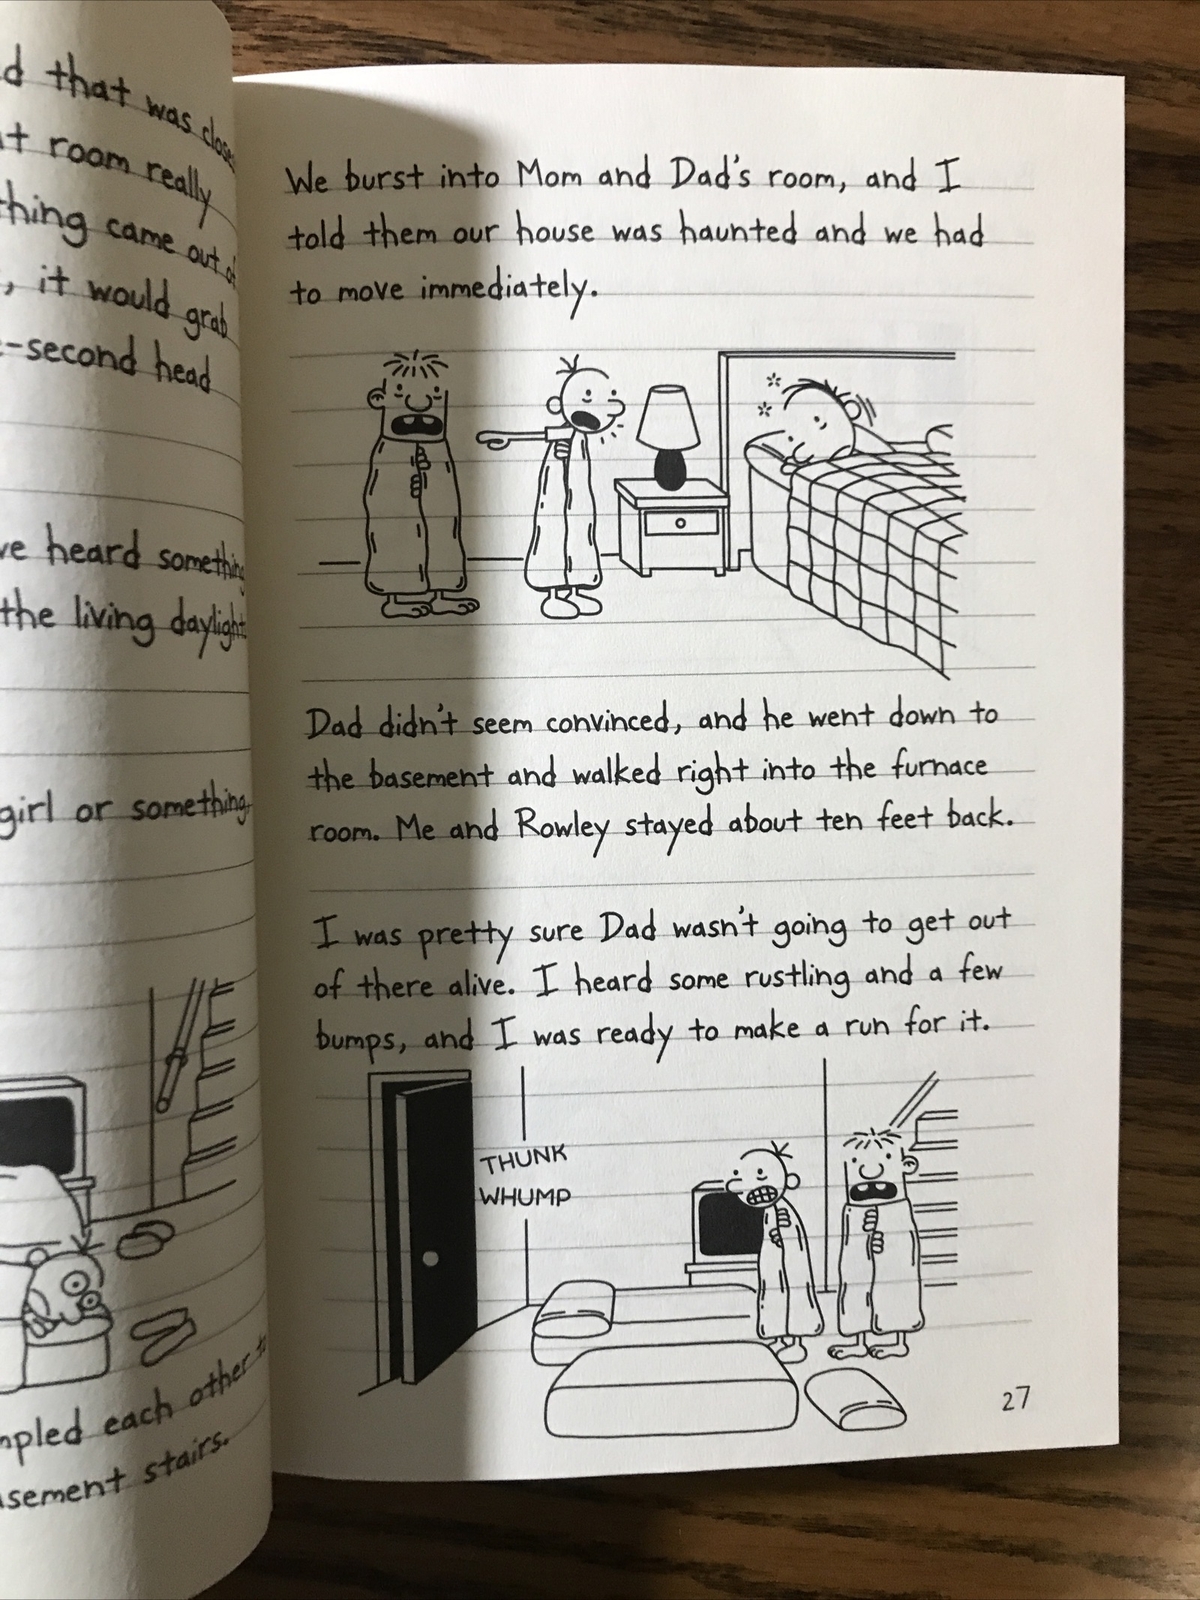 d that was close
t room really
thing came out of
, it would grab
-second head
ve heard something
the living daylight
girl or something.
mpled each other to
asement stairs.
We burst into Mom and Dad's room, and I
told them our house was haunted and we had
to move immediately.
Dad didn't seem convinced, and he went down to
the basement and walked right into the furnace
room. Me and Rowley stayed about ten feet back.
I was pretty sure Dad wasn't going to get out
of there alive. I heard some rustling and a few
bumps, and I was ready to make a run for it.
THUNK
WHUMP
27